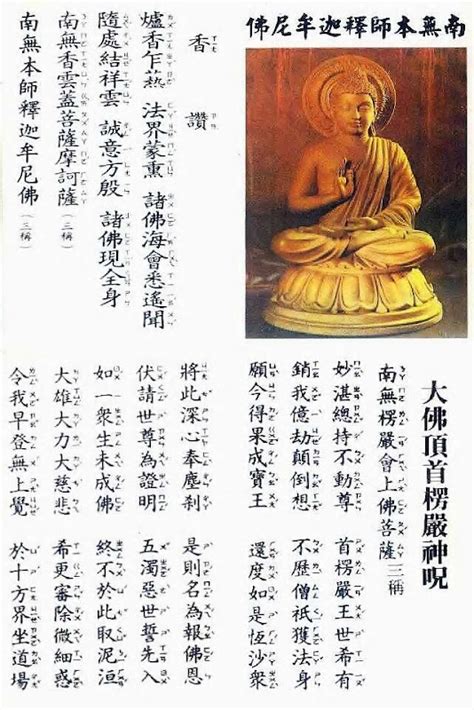 南無本師釋迦牟尼佛
香讚
爐香乍爇 法界蒙熏 諸佛海會悉遙聞
隨處結祥雲 誠意方殷 諸佛現全身
南無香雲蓋菩薩摩訶薩(三稱)
南無本師釋迦牟尼佛(三稱)
大佛頂首楞嚴神咒
南無楞嚴會上佛菩薩 三稱
妙湛總持不動尊 首楞嚴王世希有
銷我億劫顛倒想 不歷僧祇獲法身
願今得果成寶王 還度如是恆沙眾
將此深心奉塵剎 是則名為報佛恩
伏請世尊為證明 五濁惡世誓先入
如一眾生未成佛 終不於此取泥洹
大雄大力大慈悲 希更審除微細惑
令我早登無上覺 於十方界坐道場